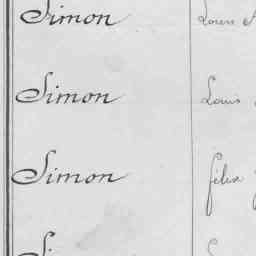 Simon Louis
Simon Louis
Simon félix
Simon